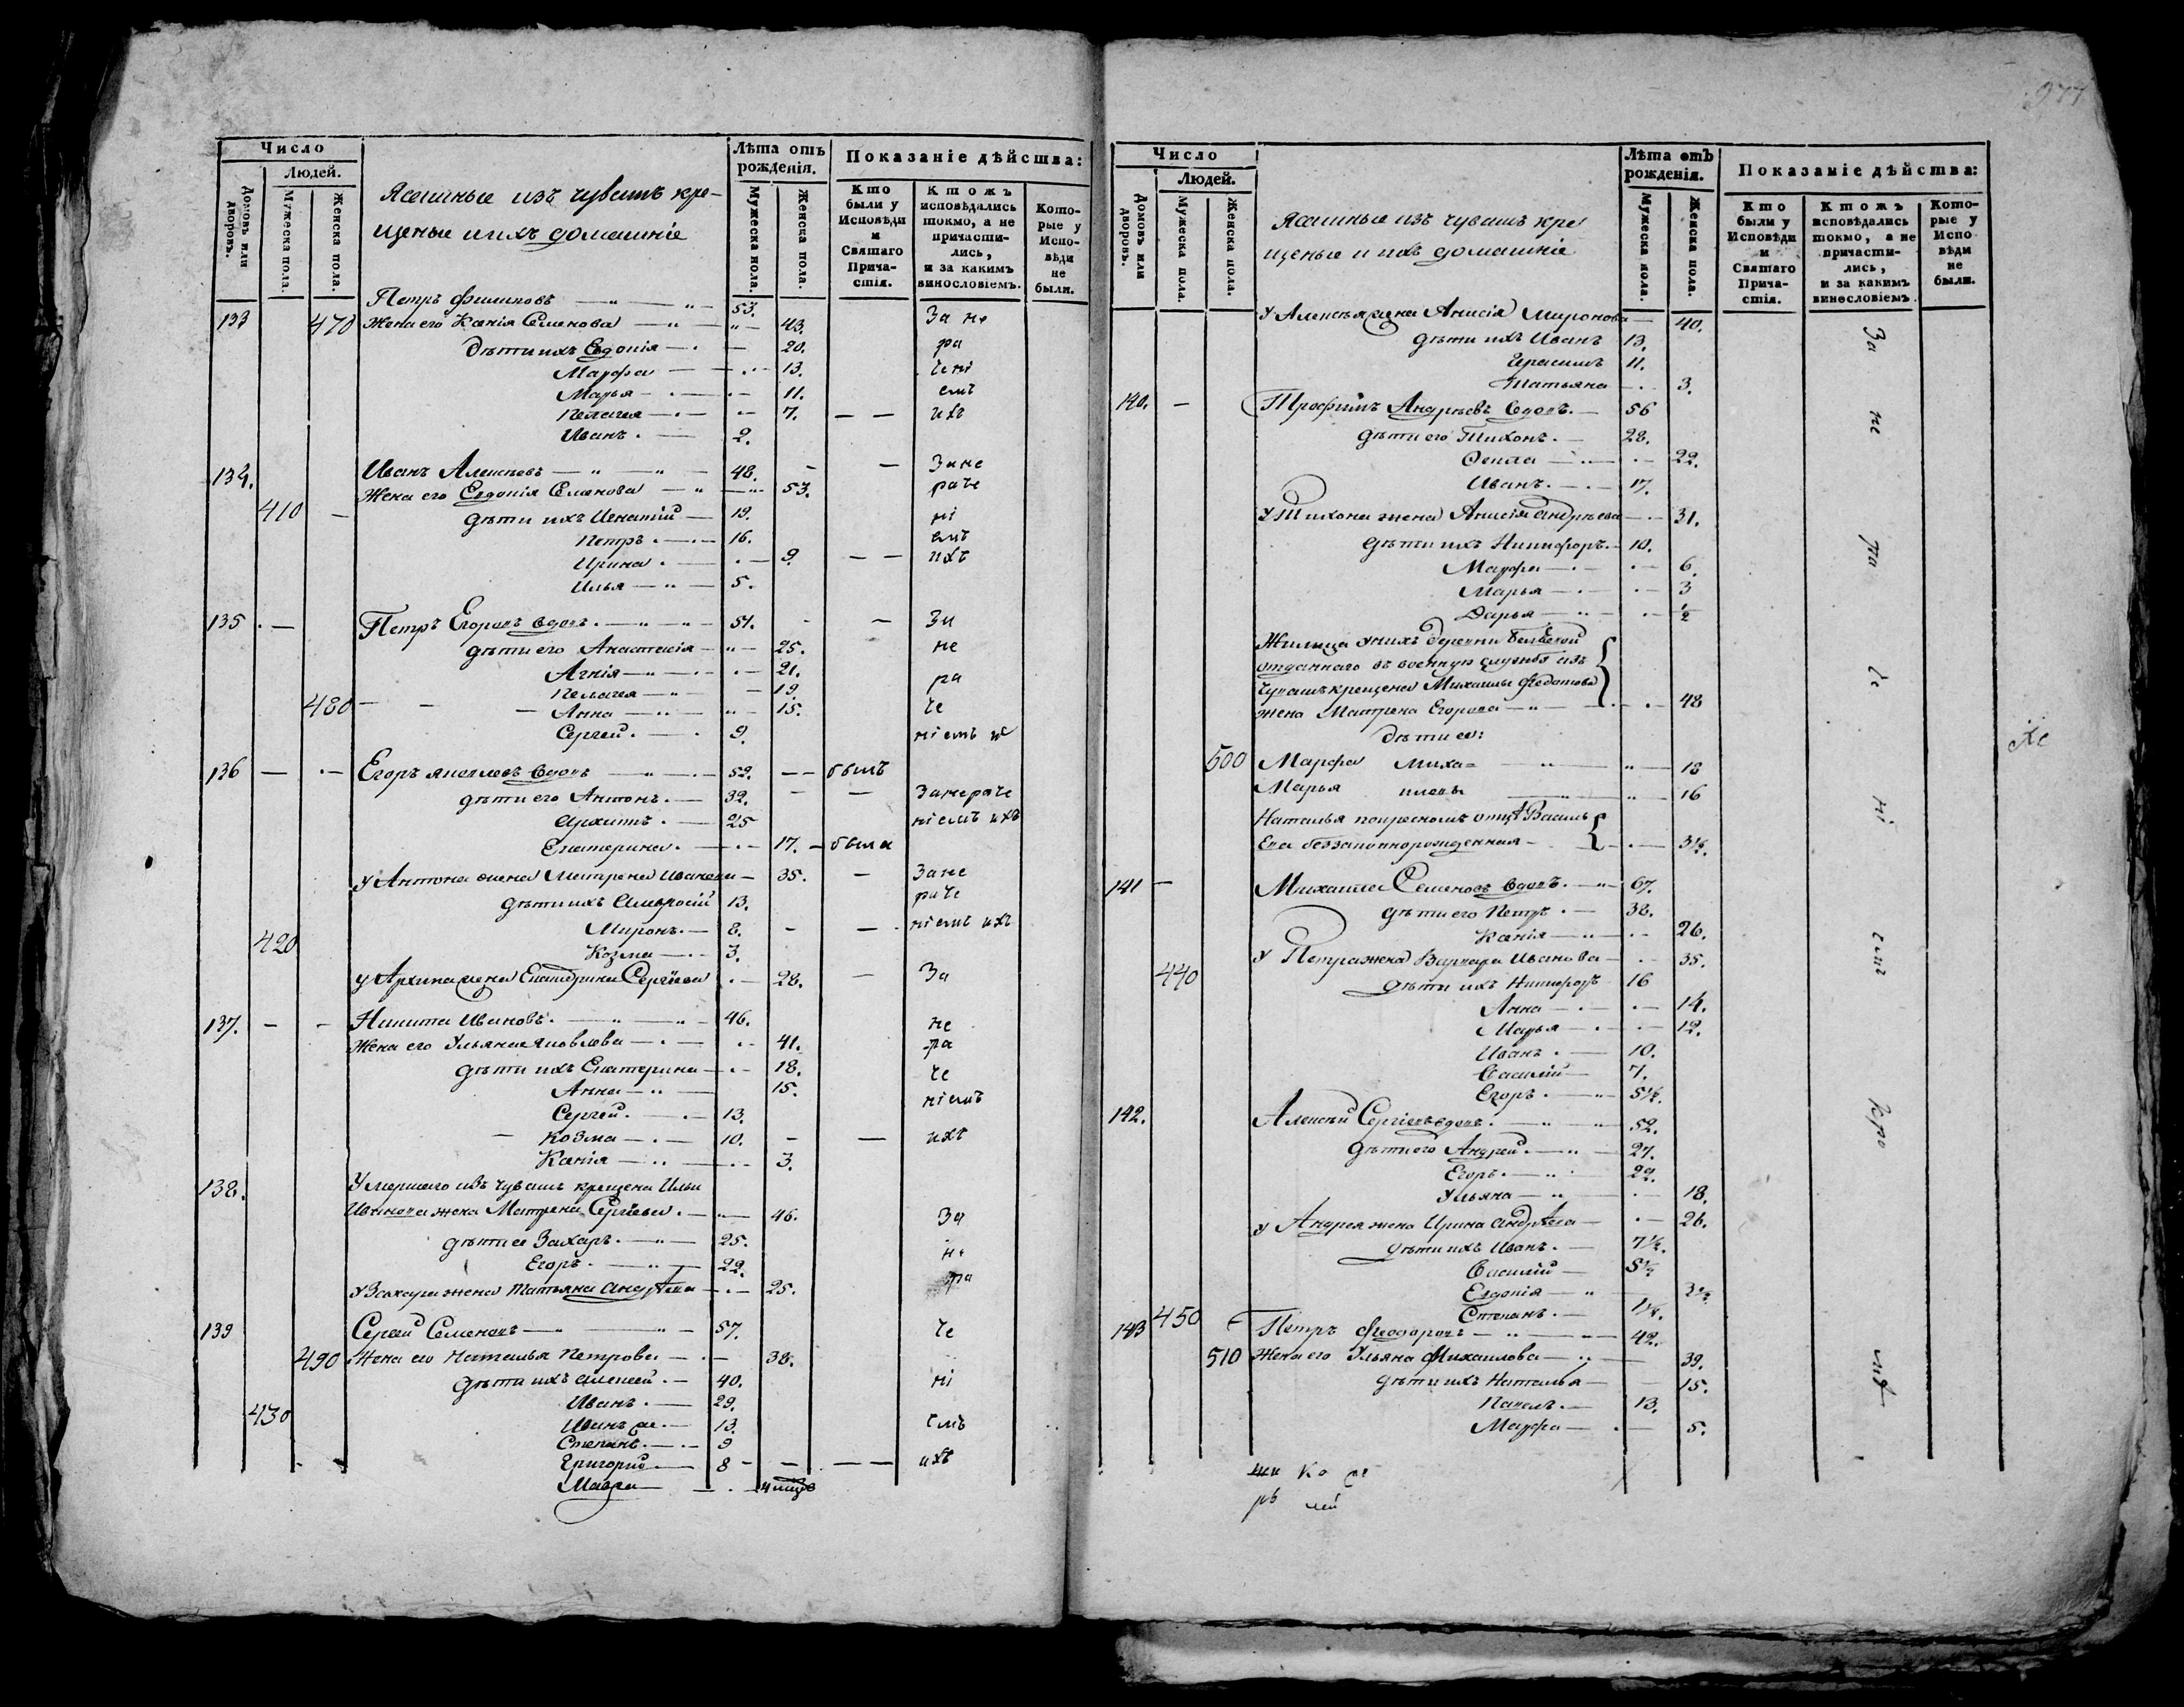 Число
Людей.
Домовъ или дворовъ.
Мужеска пола.
Женска пола.
Ясашные изъ чувашъ кре-
щеные и ихъ домашніе
Лѣта отъ рожденія.
Мужеска пола.
Женска пола.
Показаніе дѣйства:
Кто были у Исповѣди и Святаго Причастія.
Ктожъ исповѣдались токмо, а не причасти- лись, и за какимъ винословіемъ.
Кото- рые у Испо- вѣди не были.
133 Петръ Филиповъ 53.
470 Жена его Ксенія Семенова 43. За не
Дѣти ихъ Евдокія 20. ра
Марфа 13. чені
Марья 11. емъ
Пелагея 7. ихъ
Иванъ 2.
134. Иванъ Алексѣевъ 48. За не
Жена его Евдокія Семенова 53. раче
410 дѣти ихъ Игнатій 19. ні
Петръ 16. емъ
Ирина 9. ихъ
Илья 5.
135 Петръ Егоровъ вдовъ 51. За
дѣти его Анастасія 25. не
Агнія 21.
Пелагея 19. ра
480 Анна 15. че
Сергей 9. ніемъ и
136 Егоръ Яковлевъ вдовъ 52. былъ
дѣти его Антонъ 32. За нераче
Архипъ 25 ніемъ ихъ
Екатерина 17. была
У Антона жена Матрена Иванова 35. За не
дѣти ихъ Амвросій 13. раче
Миронъ 8. ніемъ ихъ
420 Козма 3.
У Архипа жена Екатерина Сергѣева 28. За
137. Никита Ивановъ 46. не
Жена его Ульяна Яковлева 41. ра
дѣти ихъ Екатерина 18. че
Анна 15. ніемъ
Сергей 13.
Козма 10. ихъ
Ксенія 3.
138. Умершаго изъ чувашъ крещена Ильи
Иванова жена Матрена Сергѣева 46. За
дѣти ея Захаръ 25. не
Егоръ 22.
У Захара жена Татьяна Андрѣева 25. ра
139 Сергей Семеновъ 57. че
490 Жена его Наталья Петрова 38.
дѣти ихъ Алексей 40. ні
Иванъ 29.
430 Иванъ же 13. емъ
Степанъ 9
Григорій 8 ихъ
Мавра
977
Число
Людей.
Домовъ или дворовъ.
Мужеска пола.
Женска пола.
Ясашные изъ чувашъ кре
щеные и ихъ домашніе
Лѣта отъ рожденія.
Мужеска пола.
Женска пола.
Показаніе дѣйства:
Кто были у Исповѣди и Святаго Прича- стія.
Ктожъ исповѣдались токмо, а не причасти- лись, и за какимъ винословіемъ.
Кото- рые у Испо вѣди не были.
У Алексѣя жена Анисія Миронова 40.
дѣти ихъ Иванъ 13.
Герасимъ 11.
Татьяна 3.
140. Трофимъ Андрѣевъ вдовъ 56
дѣти его Тихонъ 28.
Фекла 22.
Иванъ 17.
У Тихона жена Анисія Андрѣева 31.
дѣти ихъ Никифоръ 10.
Марфа 6.
Марья 3
Дарья ½
Жилица у нихъ деревни
отданнаго въ военную службу изъ
чувашъ крещена Михайлы Федотова
жена Матрена Егорова 48
Дѣти ея:
500 Марфа Миха= 18
Марья иловы 16
Наталья по кресномъ отцѣ Василь
Ева беззаконнорожденная 3½.
141 Михаила Семеновъ вдовъ 67.
дѣти его Петръ 38.
Ксенія 26.
У Петра жена Варвара Иванова 35.
440 дѣти ихъ Никифоръ 16
Анна 14.
Марья 12.
Иванъ 10.
Василій 7.
Егоръ 5½.
142. Алексѣй Сергѣевъ вдовъ 52.
Дѣти его Андрей 27.
Егоръ 22.
Ульяна 18.
У Андрея жена Ирина Андрѣева 26.
дѣти ихъ Иванъ 7½.
Василій 5½
Евдокія 3½
450 Степанъ 1½.
143 Петръ Феодоровъ 42.
510 Жена его Ульяна Михаилова 39.
дѣти ихъ Наталья 15.
Павелъ 13.
Марфа 5.
За не ра че ні емъ
ко се
рѣ лей